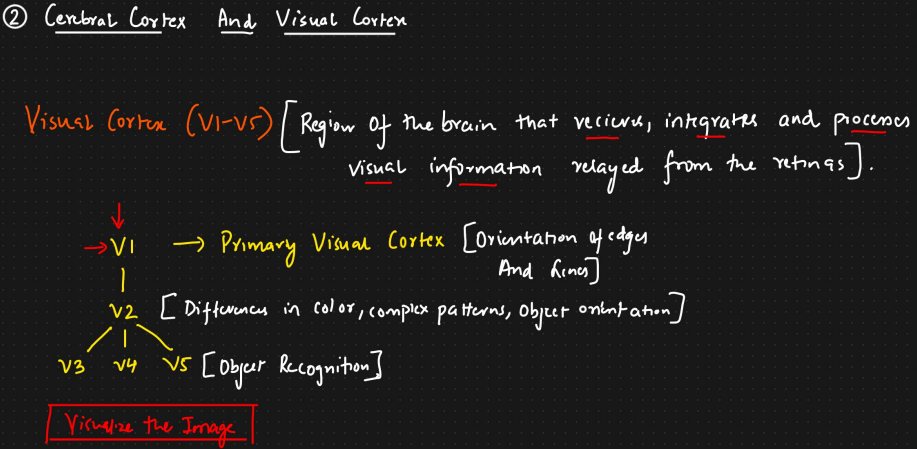 ② Cerebral Cortex And Visual Cortex
Visual Cortex (V1-V5) [Region of the brain that recieves, integrates and processes
visual information relayed from the retinas].
→ V1 → Primary Visual Cortex [Orientation of edges
And Lines]
V2 [Differences in color, complex patterns, Object orientation]
V3 V4 V5 [Object Recognition]
Visualize the Image